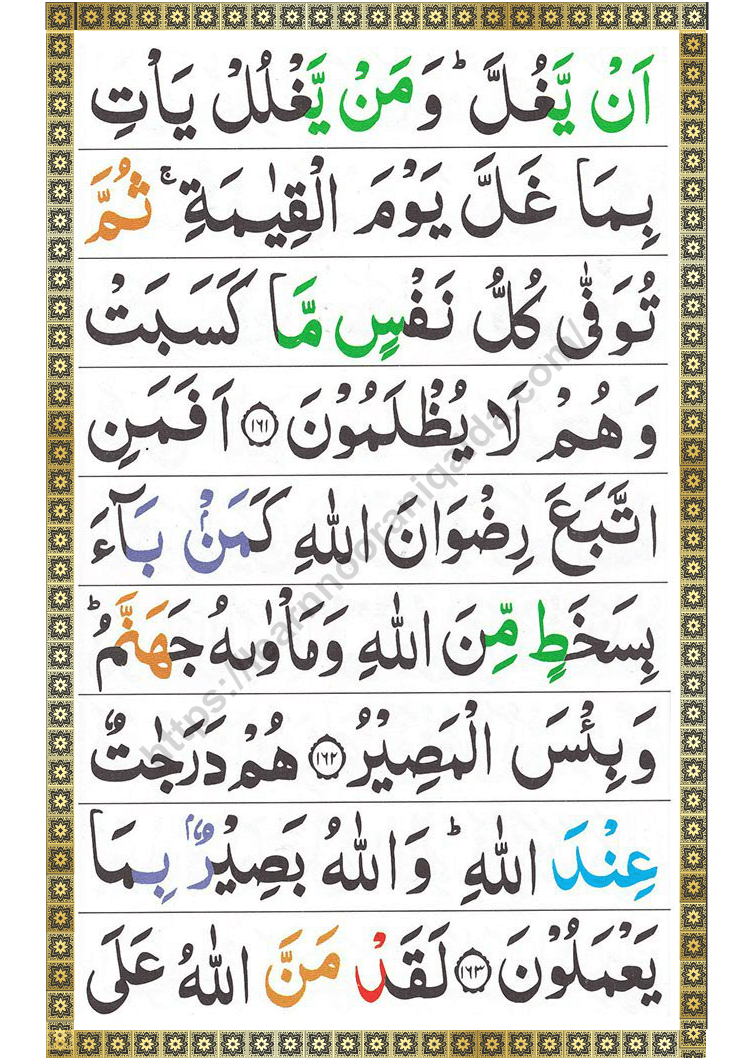 اَنْ يَّغُلَّ ؕ وَمَنْ يَّغْلُلْ يَاْتِ
بِمَا غَلَّ يَوْمَ الْقِيٰمَةِ ۚ ثُمَّ
تُوَفّٰى كُلُّ نَفْسٍ مَّا كَسَبَتْ
وَهُمْ لَا يُظْلَمُوْنَ ﴿۱۶۱﴾ اَفَمَنِ
اتَّبَعَ رِضْوَانَ اللّٰهِ كَمَنْۢ بَآءَ
بِسَخَطٍ مِّنَ اللّٰهِ وَمَاْوٰىهُ جَهَنَّمُ ؕ
وَبِئْسَ الْمَصِيْرُ ﴿۱۶۲﴾ هُمْ دَرَجٰتٌ
عِنْدَ اللّٰهِ ؕ وَاللّٰهُ بَصِيْرٌۢ بِمَا
يَعْمَلُوْنَ ﴿۱۶۳﴾ لَقَدْ مَنَّ اللّٰهُ عَلَى
https://learnnooraniqaida.com/